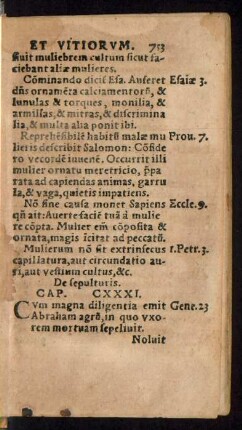 ET VITIORVM. 753
ſtuit muliebrem cultum ſicut fa-
ciebant aliæ mulieres.
Cõminando dicit Eſa. Auferet Eſaiæ 3.
dñs ornamẽta calciamentorũ, &
lunulas & torques, monilia, &
armillas, & mitras, & diſcrimina
lia, & multa alia ponit ibi.
Reprehẽſibilẽ habitũ malæ mu Prou. 7.
lieris deſcribit Salomon: Cõſide
ro vecordẽ iuuenẽ. Occurrit illi
mulier ornatu meretricio, p̃pa
rata ad capiendas animas, garru
la, & vaga, quietis impatiens.
Nõ ſine cauſa monet Sapiens Eccle. 9.
qñ ait: Auerte faciẽ tuã à mulie
re cõpta. Mulier em̃ cõpoſita &
ornata, magis ĩcitat ad peccatũ.
Mulierum nõ ſit extrinſecus 1. Petr. 3.
capillatura, aut circundatio au-
ri, aut veſtium cultus, &c.
De ſepulturis.
CAP. CXXXI.
CVm magna diligentia emit Gene. 23
Abraham agrũ, in quo vxo-
rem mortuam ſepeliuit.
Noluit